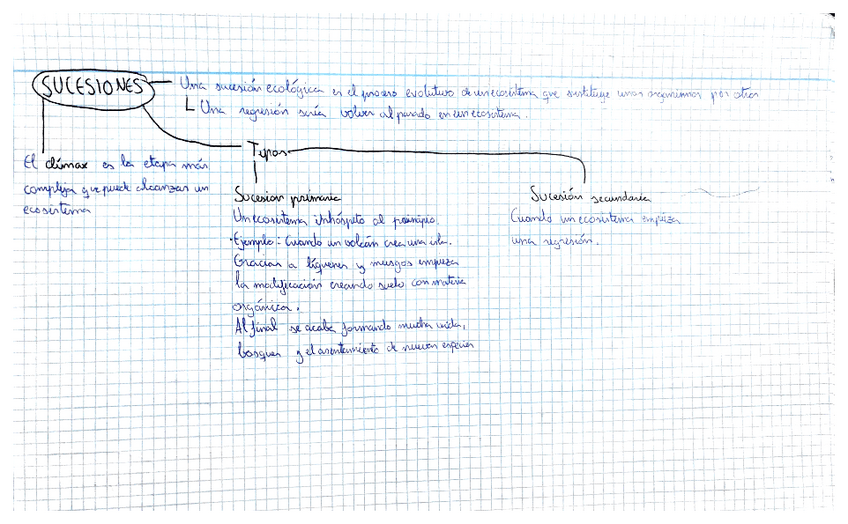 SUCESIONES
Una sucesión ecológica es el proceso evolutivo de un ecosistema que sustituye unos organismos por otros
Una regresión sería volver al pasado en un ecosistema.
El clímax es la etapa más
compleja que puede alcanzar un
ecosistema
Tipos
Sucesión primaria
Un ecosistema inhóspito al principio.
•Ejemplo: Cuando un volcán crea una isla.
Gracias a líquenes y musgos empieza
la modificación creando suelo con materia
orgánica.
Al final se acaba formando mucha vida,
bosques y el asentamiento de nuevas especies
Sucesión secundaria
Cuando un ecosistema empieza
una regresión.